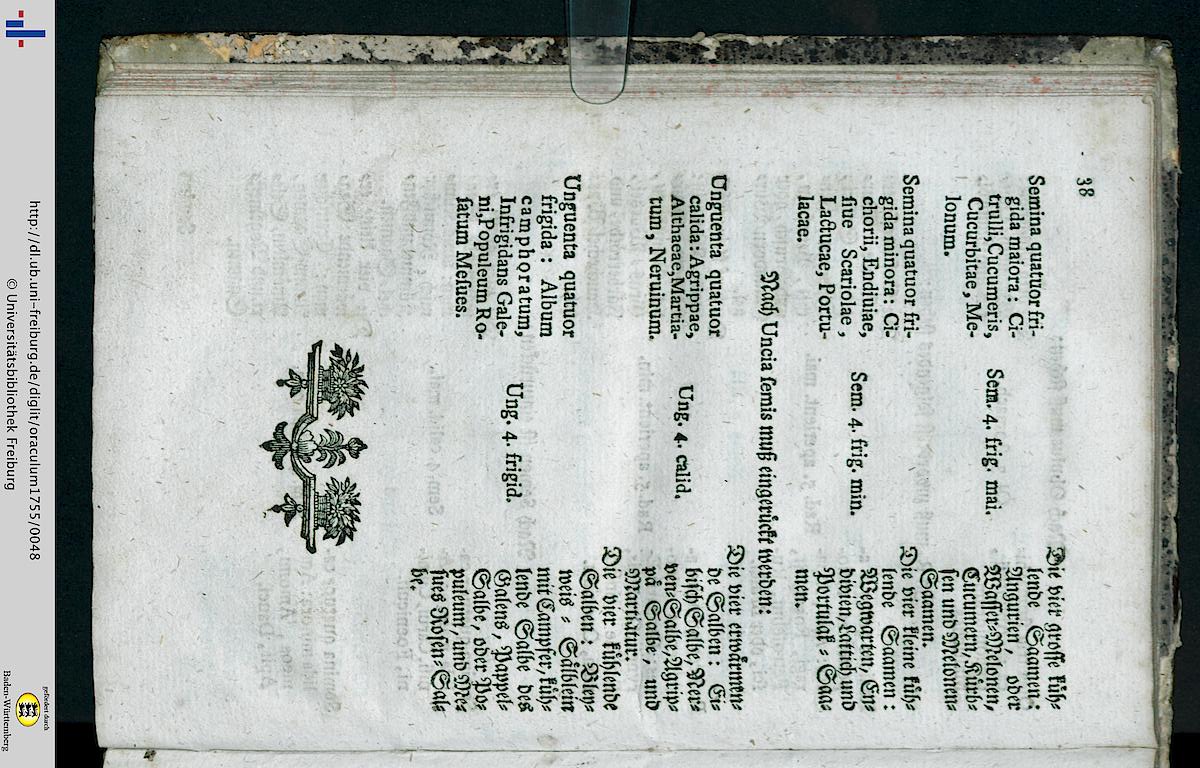 38
Semina quatuor fri-
gida maiora: Ci-
trulli, Cucumeris,
Cucurbitae, Me-
lonum.
Sem. 4. frig. mai.
Die vier grosse küh-
lende Saamen:
Angurien, oder
Wasser-Melonen,
Cucumern, Kürb-
sen und Melonen-
Saamen.
Semina quatuor fri-
gida minora: Ci-
chorii, Endiuiae,
siue Scariolae,
Lactucae, Portu-
lacae.
Sem. 4. frig. min.
Die vier kleine küh-
lende Saamen:
Wegwarten, En-
divien, Lattich und
Portulak-Saa-
men.
Nach Uncia semis muß eingerückt werden:
Unguenta quatuor
calida: Agrippae,
Althaeae, Martia-
tum, Neruinum.
Ung. 4. calid.
Die vier erwärmen-
de Salben: Ei-
bisch Salbe, Ner-
ven-Salbe, Agrip-
pä Salbe, und
Martiatur.
Unguenta quatuor
frigida: Album
camphoratum,
Infrigidans Gale-
ni, Populeum Ro-
satum Mesues.
Ung. 4. frigid.
Die vier kühlende
Salben: Bley-
weis-Sälblein
mit Campfer, küh-
lende Salbe des
Galens, Pappel-
Salbe, oder Po-
puleum, und Me-
sues Rosen-Sal-
be.
http://dl.ub.uni-freiburg.de/diglit/oraculum1755/0048
© Universitätsbibliothek Freiburg
gefördert durch
Baden-Württemberg